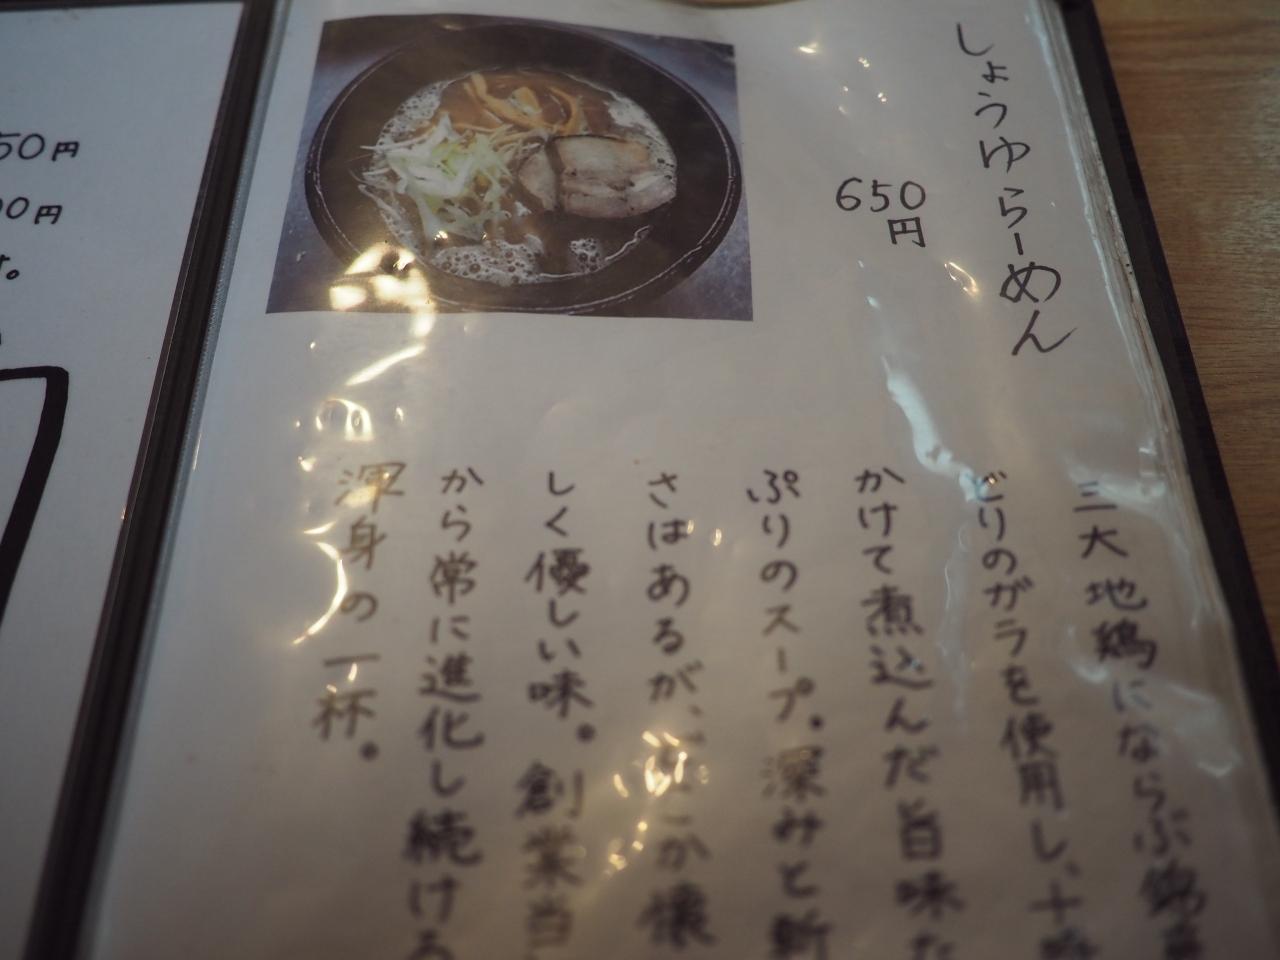 しょうゆらーめん
650
円
三大地鶏にならぶ錦
どりのガラを使用し、十
かけて煮込んだ旨味た
ぷりのスープ。深みと新
さはあるが、どこか懐
しく優しい味。創業当
から常に進化し続ける
渾身の一杯。
50円
00円
す。